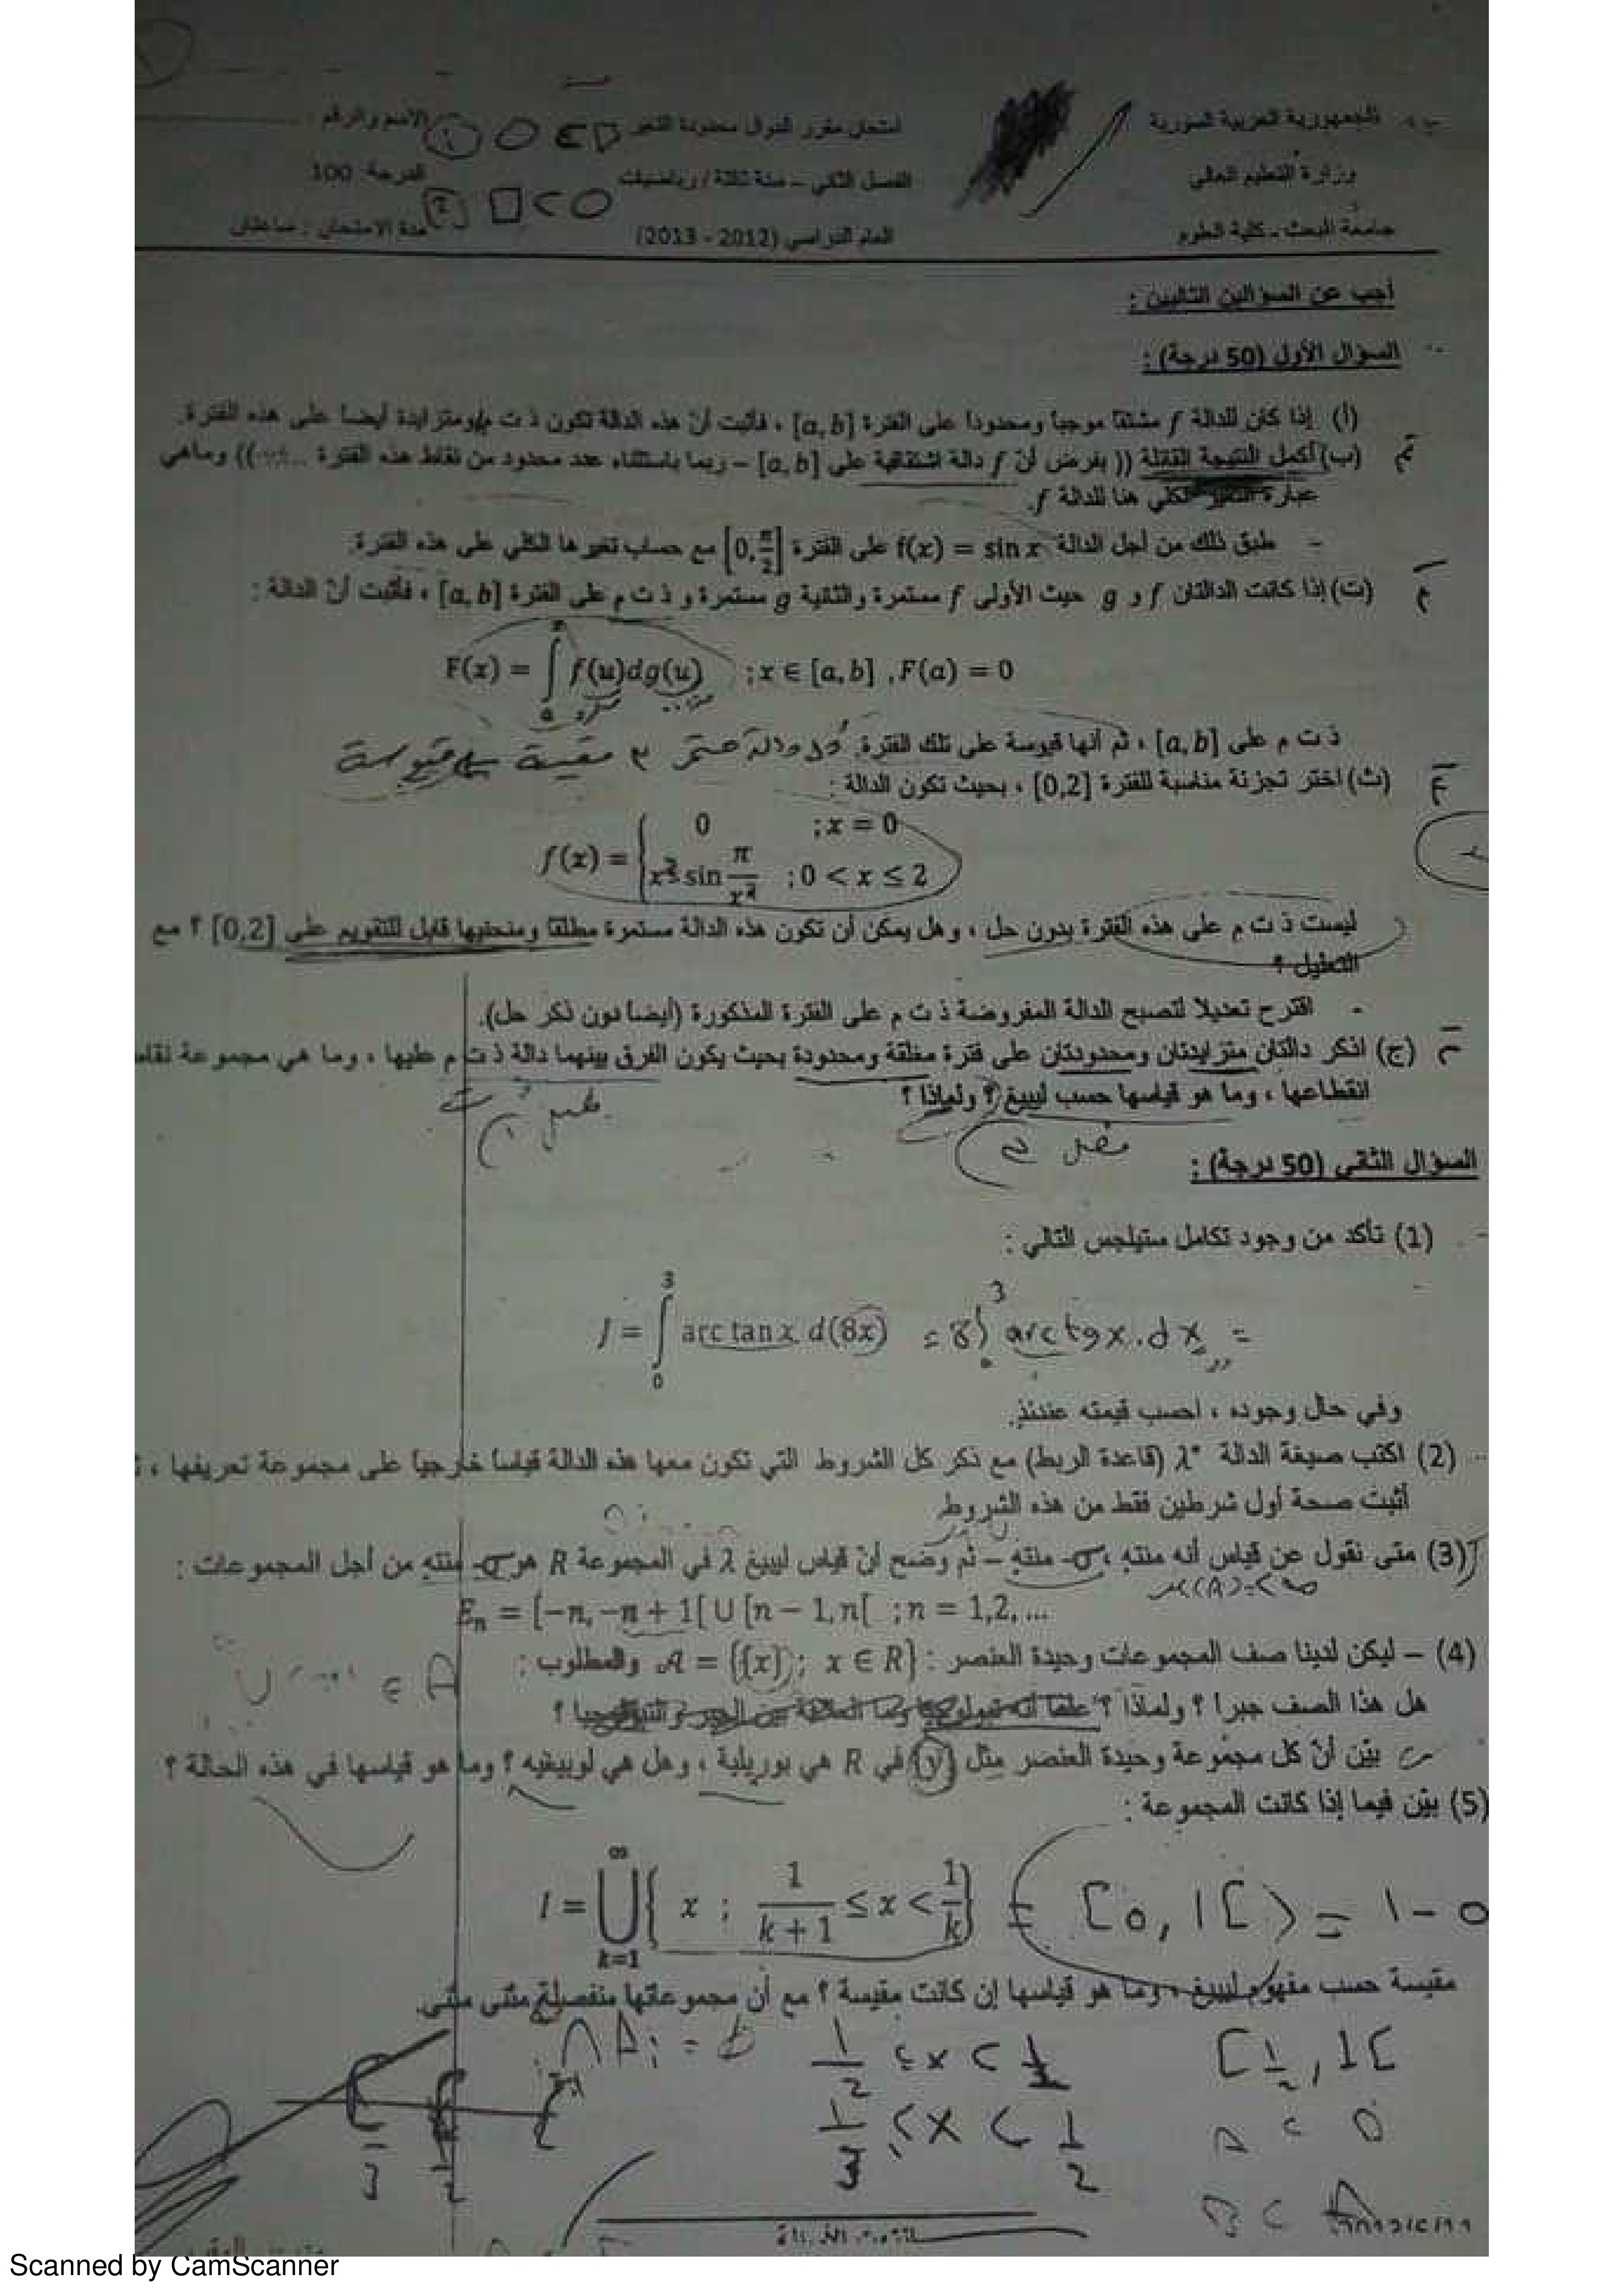 الجمهورية العربية السورية
امتحان مقرر الدوال محدودة التغير
الاسم والرقم :
وزارة التعليم العالي
الفصل الثاني – سنة ثالثة / رياضيات
الدرجة: 100
جامعة البعث - كلية العلوم
العام الدراسي (2012 - 2013)
مدة الامتحان : ساعتان
أجب عن السؤالين التاليين :
السؤال الأول (50 درجة) :
(أ) إذا كان للدالة f مشتقاً موجباً ومحدوداً على الفترة [a, b] ، فأثبت أنّ هذه الدالة تكون ذ ت م ومتزايدة أيضاً على هذه الفترة.
(ب) أكمل النتيجة القائلة (( بفرض أنّ f دالة اشتقاقية على [a, b] – ربما باستثناء عدد محدود من نقاط هذه الفترة ......)) وماهي
عبارة التغير الكلي هنا للدالة f.
- طبق ذلك من أجل الدالة f(x) = sin x على الفترة [0, π/2] مع حساب تغيرها الكلي على هذه الفترة.
(ت) إذا كانت الدالتان f و g حيث الأولى f مستمرة والثانية g مستمرة و ذ ت م على الفترة [a, b] ، فأثبت أنّ الدالة :
F(x) = ∫ₐˣ f(u)dg(u) ; x ∈ [a, b] , F(a) = 0
ذ ت م على [a, b] ، ثم أنها قيوسة على تلك الفترة.
(ث) اختر تجزئة مناسبة للفترة [0,2] ، بحيث تكون الدالة :
f(x) = { 0 ; x = 0
x² sin π/x² ; 0 < x ≤ 2
ليست ذ ت م على هذه الفترة بدون حل ، وهل يمكن أن تكون هذه الدالة مستمرة مطلقاً ومنحنيها قابل للتقويم على [0,2] ؟ مع
التعليل ؟
- اقترح تعديلا لتصبح الدالة المفروضة ذ ت م على الفترة المذكورة (أيضاً دون ذكر حل).
(ج) اذكر دالتان متزايدتان ومحدودتان على فترة مغلقة ومحدودة بحيث يكون الفرق بينهما دالة ذ ت م عليها ، وما هي مجموعة نقاط
انقطاعها ، وما هو قياسها حسب ليبيغ ؟ ولماذا ؟
السؤال الثاني (50 درجة) :
(1) تأكد من وجود تكامل ستيلجس التالي :
I = ∫₀³ arc tan x d(8x) = 8∫₀³ arctgx.dx =
وفي حال وجوده ، احسب قيمته عندئذ.
(2) اكتب صيغة الدالة λ* (قاعدة الربط) مع ذكر كل الشروط التي تكون معها هذه الدالة قياساً خارجياً على مجموعة تعريفها ،
أثبت صحة أول شرطين فقط من هذه الشروط
(3) متى نقول عن قياس أنه منته ، σ- منته – ثم وضح أنّ قياس ليبيغ λ في المجموعة R هو σ- منته من أجل المجموعات :
Eₙ = [−n, −n + 1[ ∪ [n − 1, n[ ; n = 1,2, ...
(4) – ليكن لدينا صف المجموعات وحيدة العنصر : A = {{x} ; x ∈ R} والمطلوب :
هل هذا الصف جبرا ؟ ولماذا ؟
بيّن أنّ كل مجموعة وحيدة العنصر مثل {y} في R هي بوريلية ، وهل هي لوبيغيه ؟ وما هو قياسها في هذه الحالة ؟
(5) بيّن فيما إذا كانت المجموعة :
I = ⋃_{k=1}^∞ { x ; 1/(k+1) ≤ x < 1/k } = [0, 1[ ) = 1 - 0
مقيسة حسب مفهوم ليبيغ ، وما هو قياسها إن كانت مقيسة ؟ مع أن مجموعاتها منفصلة مثنى مثنى.
∩Ai = ∅
1/2 ≤ x < 1
[1/2, 1[
1/3 ≤ x < 1/2
Scanned by CamScanner